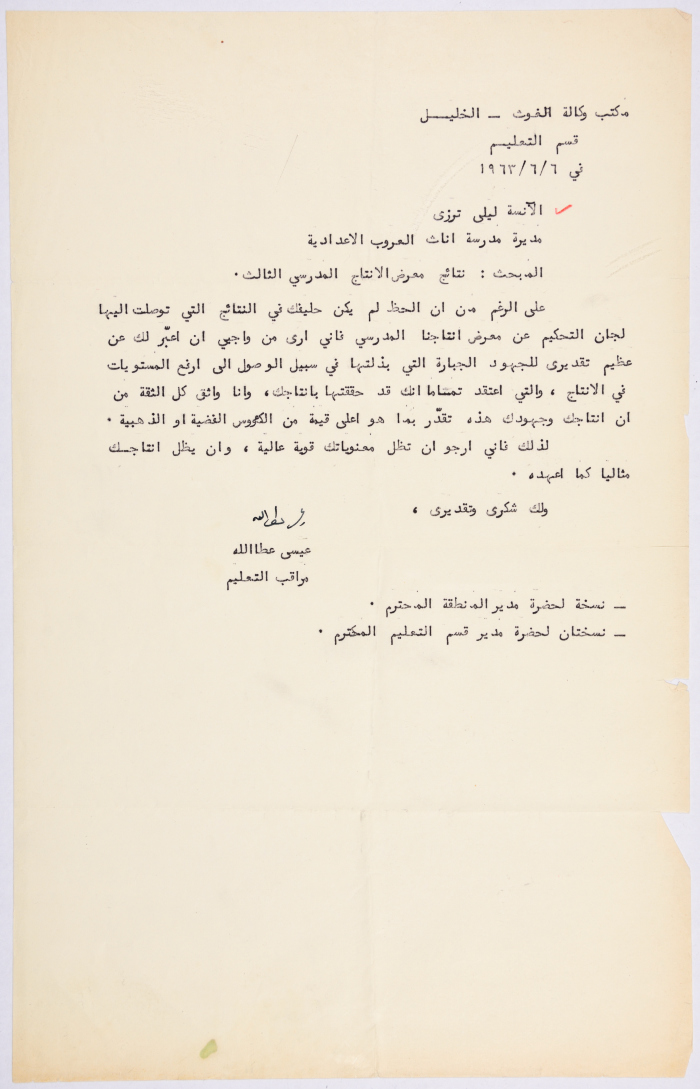 مكتب وكالة الغوث – الخليل
قسم التعليم
في ١٩٦٣/٦/٦
الآنسة ليلى ترزى
مديرة مدرسة اناث العروب الاعدادية
المبحث : نتائج معرض الانتاج المدرسي الثالث .
على الرغم من ان الحظ لم يكن حليفك في النتائج التي توصلت اليها
لجان التحكيم عن معرض انتاجنا المدرسي فاني ارى من واجبي ان اعبّر لك عن
عظيم تقديرى للجهود الجبارة التي بذلتها في سبيل الوصول الى ارفع المستويات
في الانتاج ، والتي اعتقد تماما انك قد حققتها بانتاجك، وانا واثق كل الثقة من
ان انتاجك وجهودك هذه تقدّر بما هو اعلى قيمة من الكؤوس الفضية او الذهبية .
لذلك فاني ارجو ان تظل معنوياتك قوية عالية ، وان يظل انتاجك
مثاليا كما اعهده .
ولك شكرى وتقديرى ،
عيسى عطاالله
مراقب التعليم
– نسخة لحضرة مدير المنطقة المحترم .
– نسختان لحضرة مدير قسم التعليم المحترم .